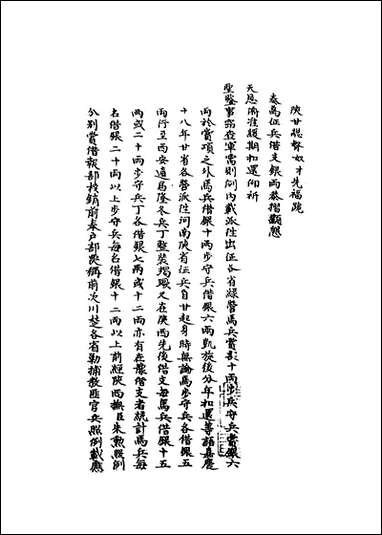 陝甘總督奴才先福跪
奏為征兵借支銀兩恭摺籲懇
天恩溥准緩期扣還仰祈
聖鑒事竊查軍需則例內載派往出征各省綠營馬兵賞銀十兩步戰守兵賞銀六
兩於賞項之外馬兵借銀十兩步守兵借銀六兩凱旋後分年扣還等語嘉慶
十八年甘省各營派往河南陝省征兵自甘起身時無論馬步守兵各借銀五
兩行至西安適馬隆冬兵丁整裝竭蹶又在陝西先後借支每馬兵借銀十五
兩或二十兩步守兵丁各借銀七兩或十二兩亦有在豫借支者統計馬兵每
名借銀二十兩以上步守兵每名借銀十二兩以上前經陝西撫臣朱勳照例
分別賞借報部核銷前奉戶部覆稱前次川楚各省勦捕教匪官兵照例載應